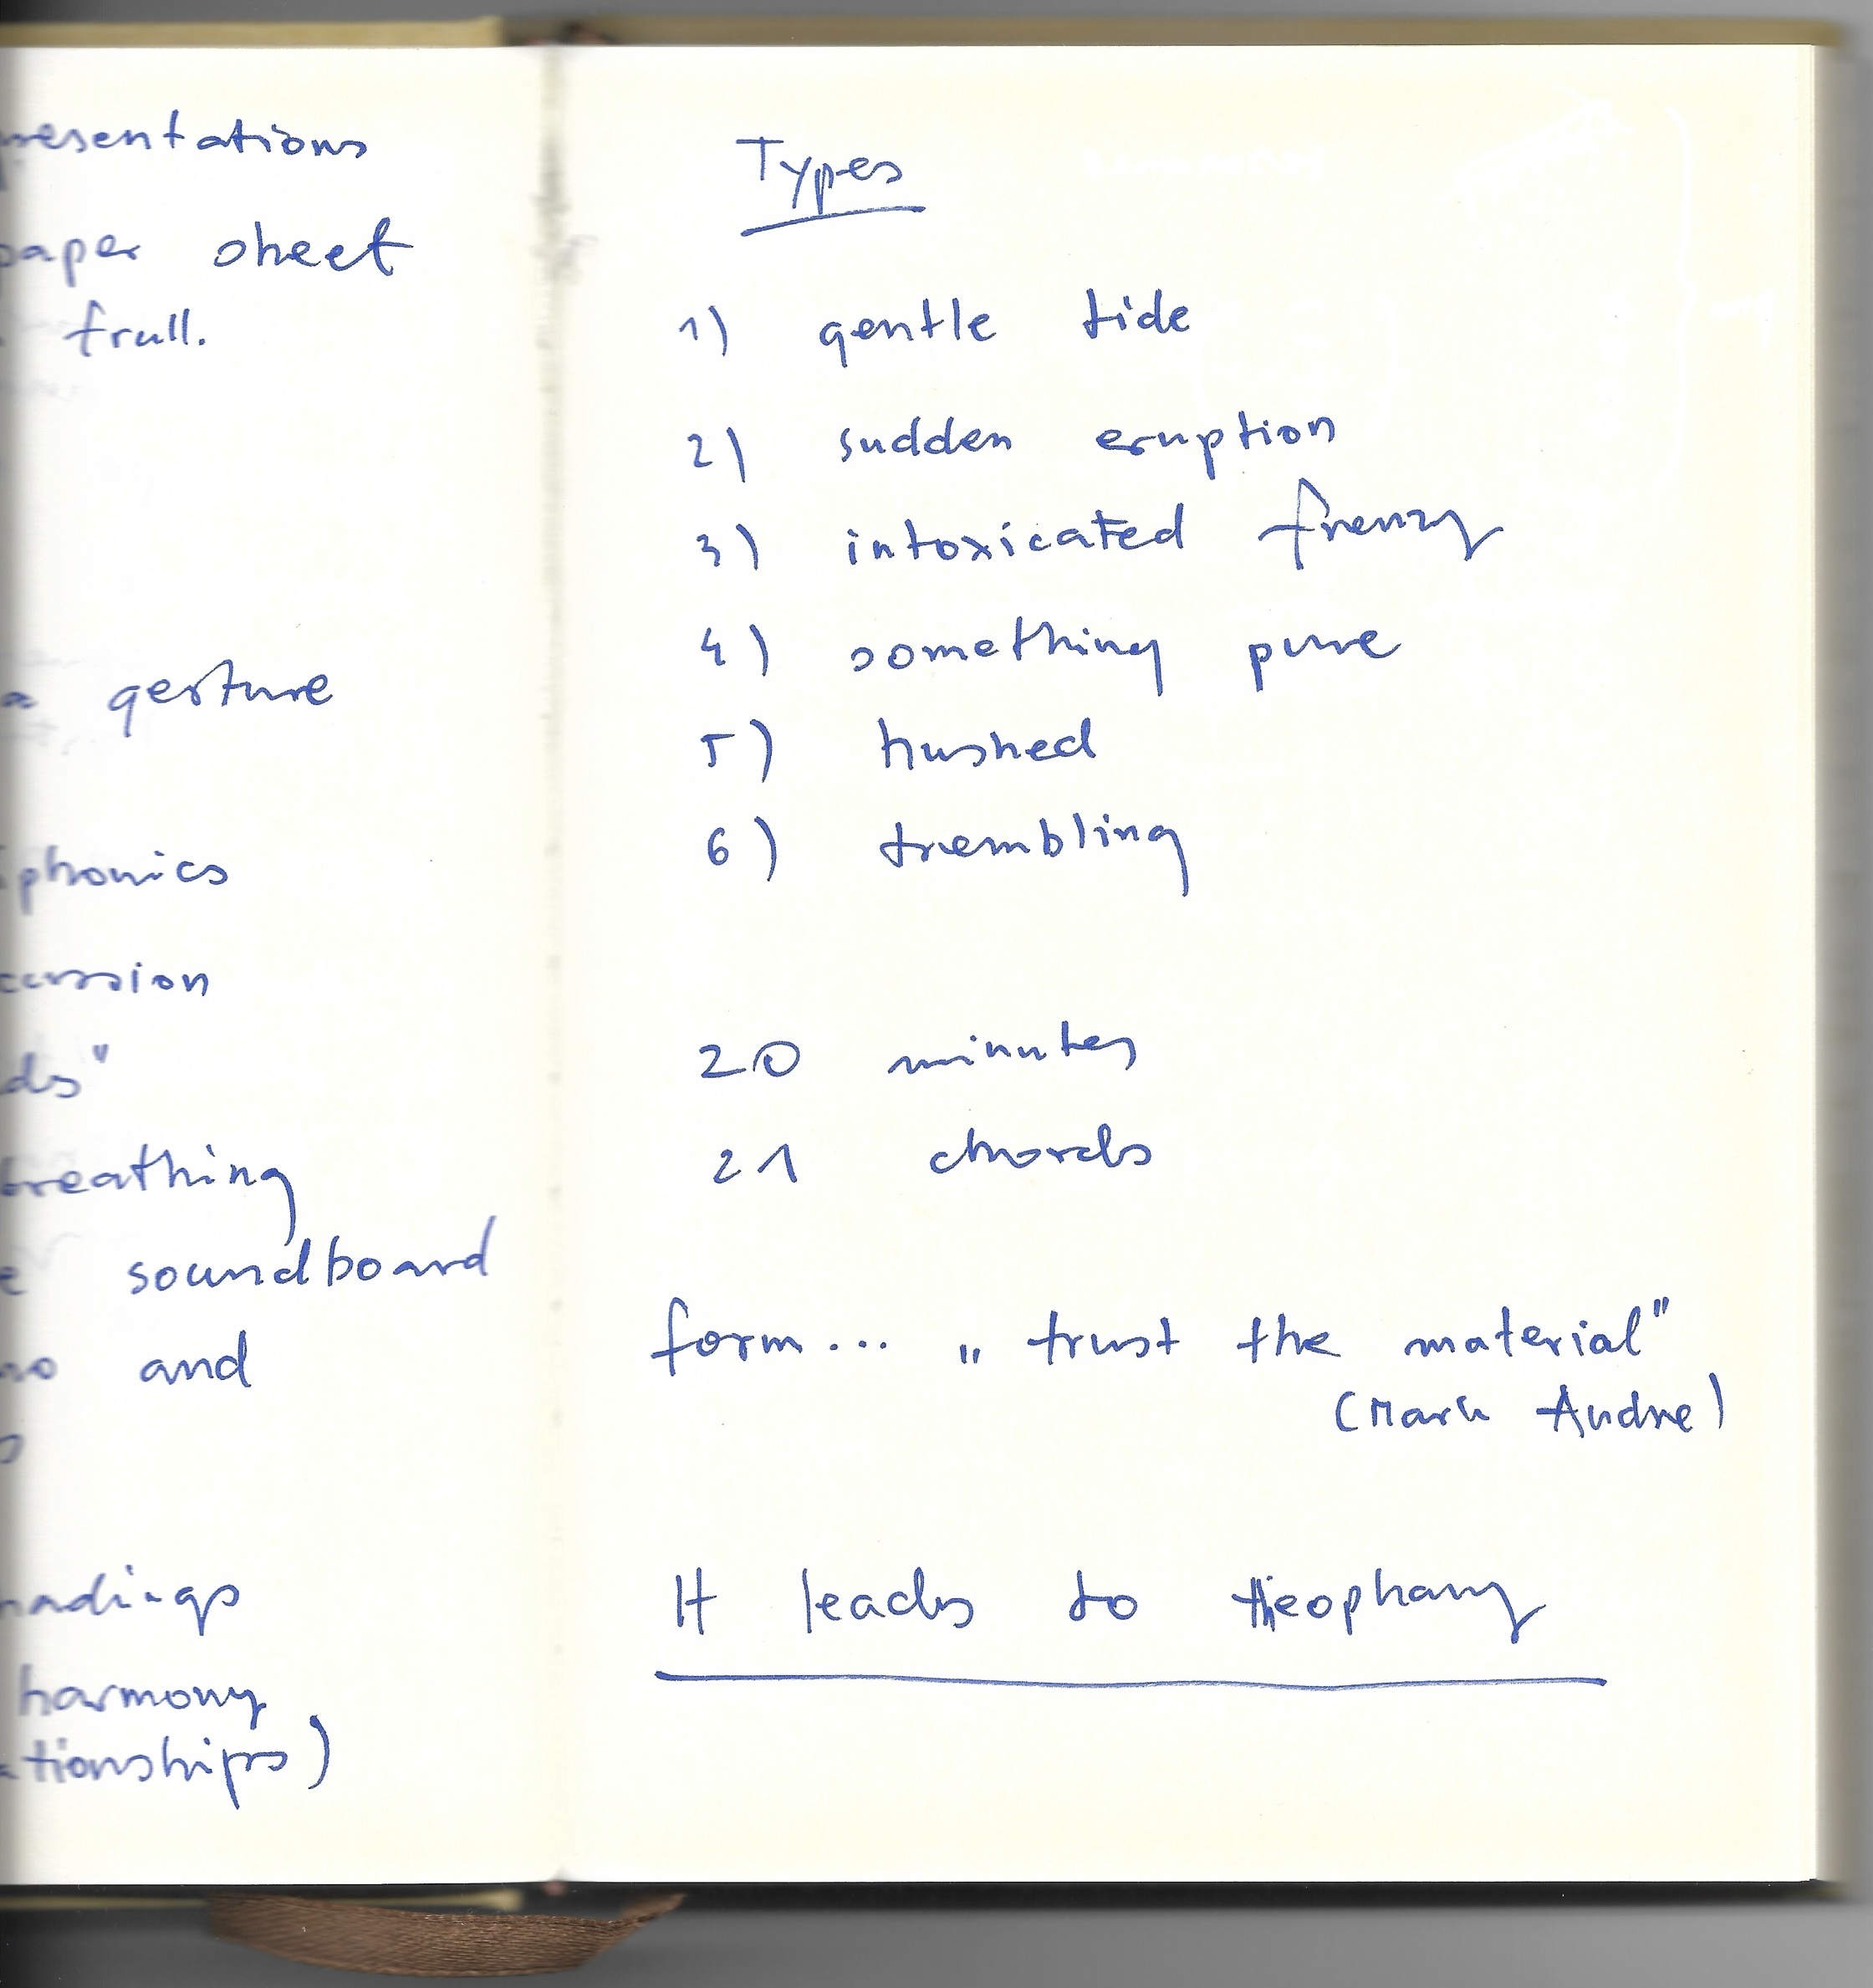 resentations
paper sheet
frull.
a gesture
phonics
cussion
ds"
breathing
e soundboard
no and
hadings
harmony
ationships)
Types
1) gentle tide
2) sudden eruption
3) intoxicated frenzy
4) something pure
5) hushed
6) trembling
20 minutes
21 chords
form... „ trust the material"
(Mark Andre)
It leads to theophany